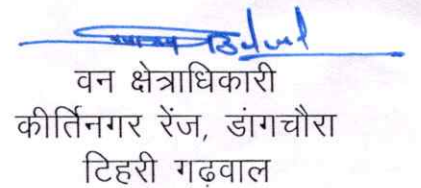 वन क्षेत्राधिकारी
कीर्तिनगर रेंज, डांगचौरा
टिहरी गढ़वाल